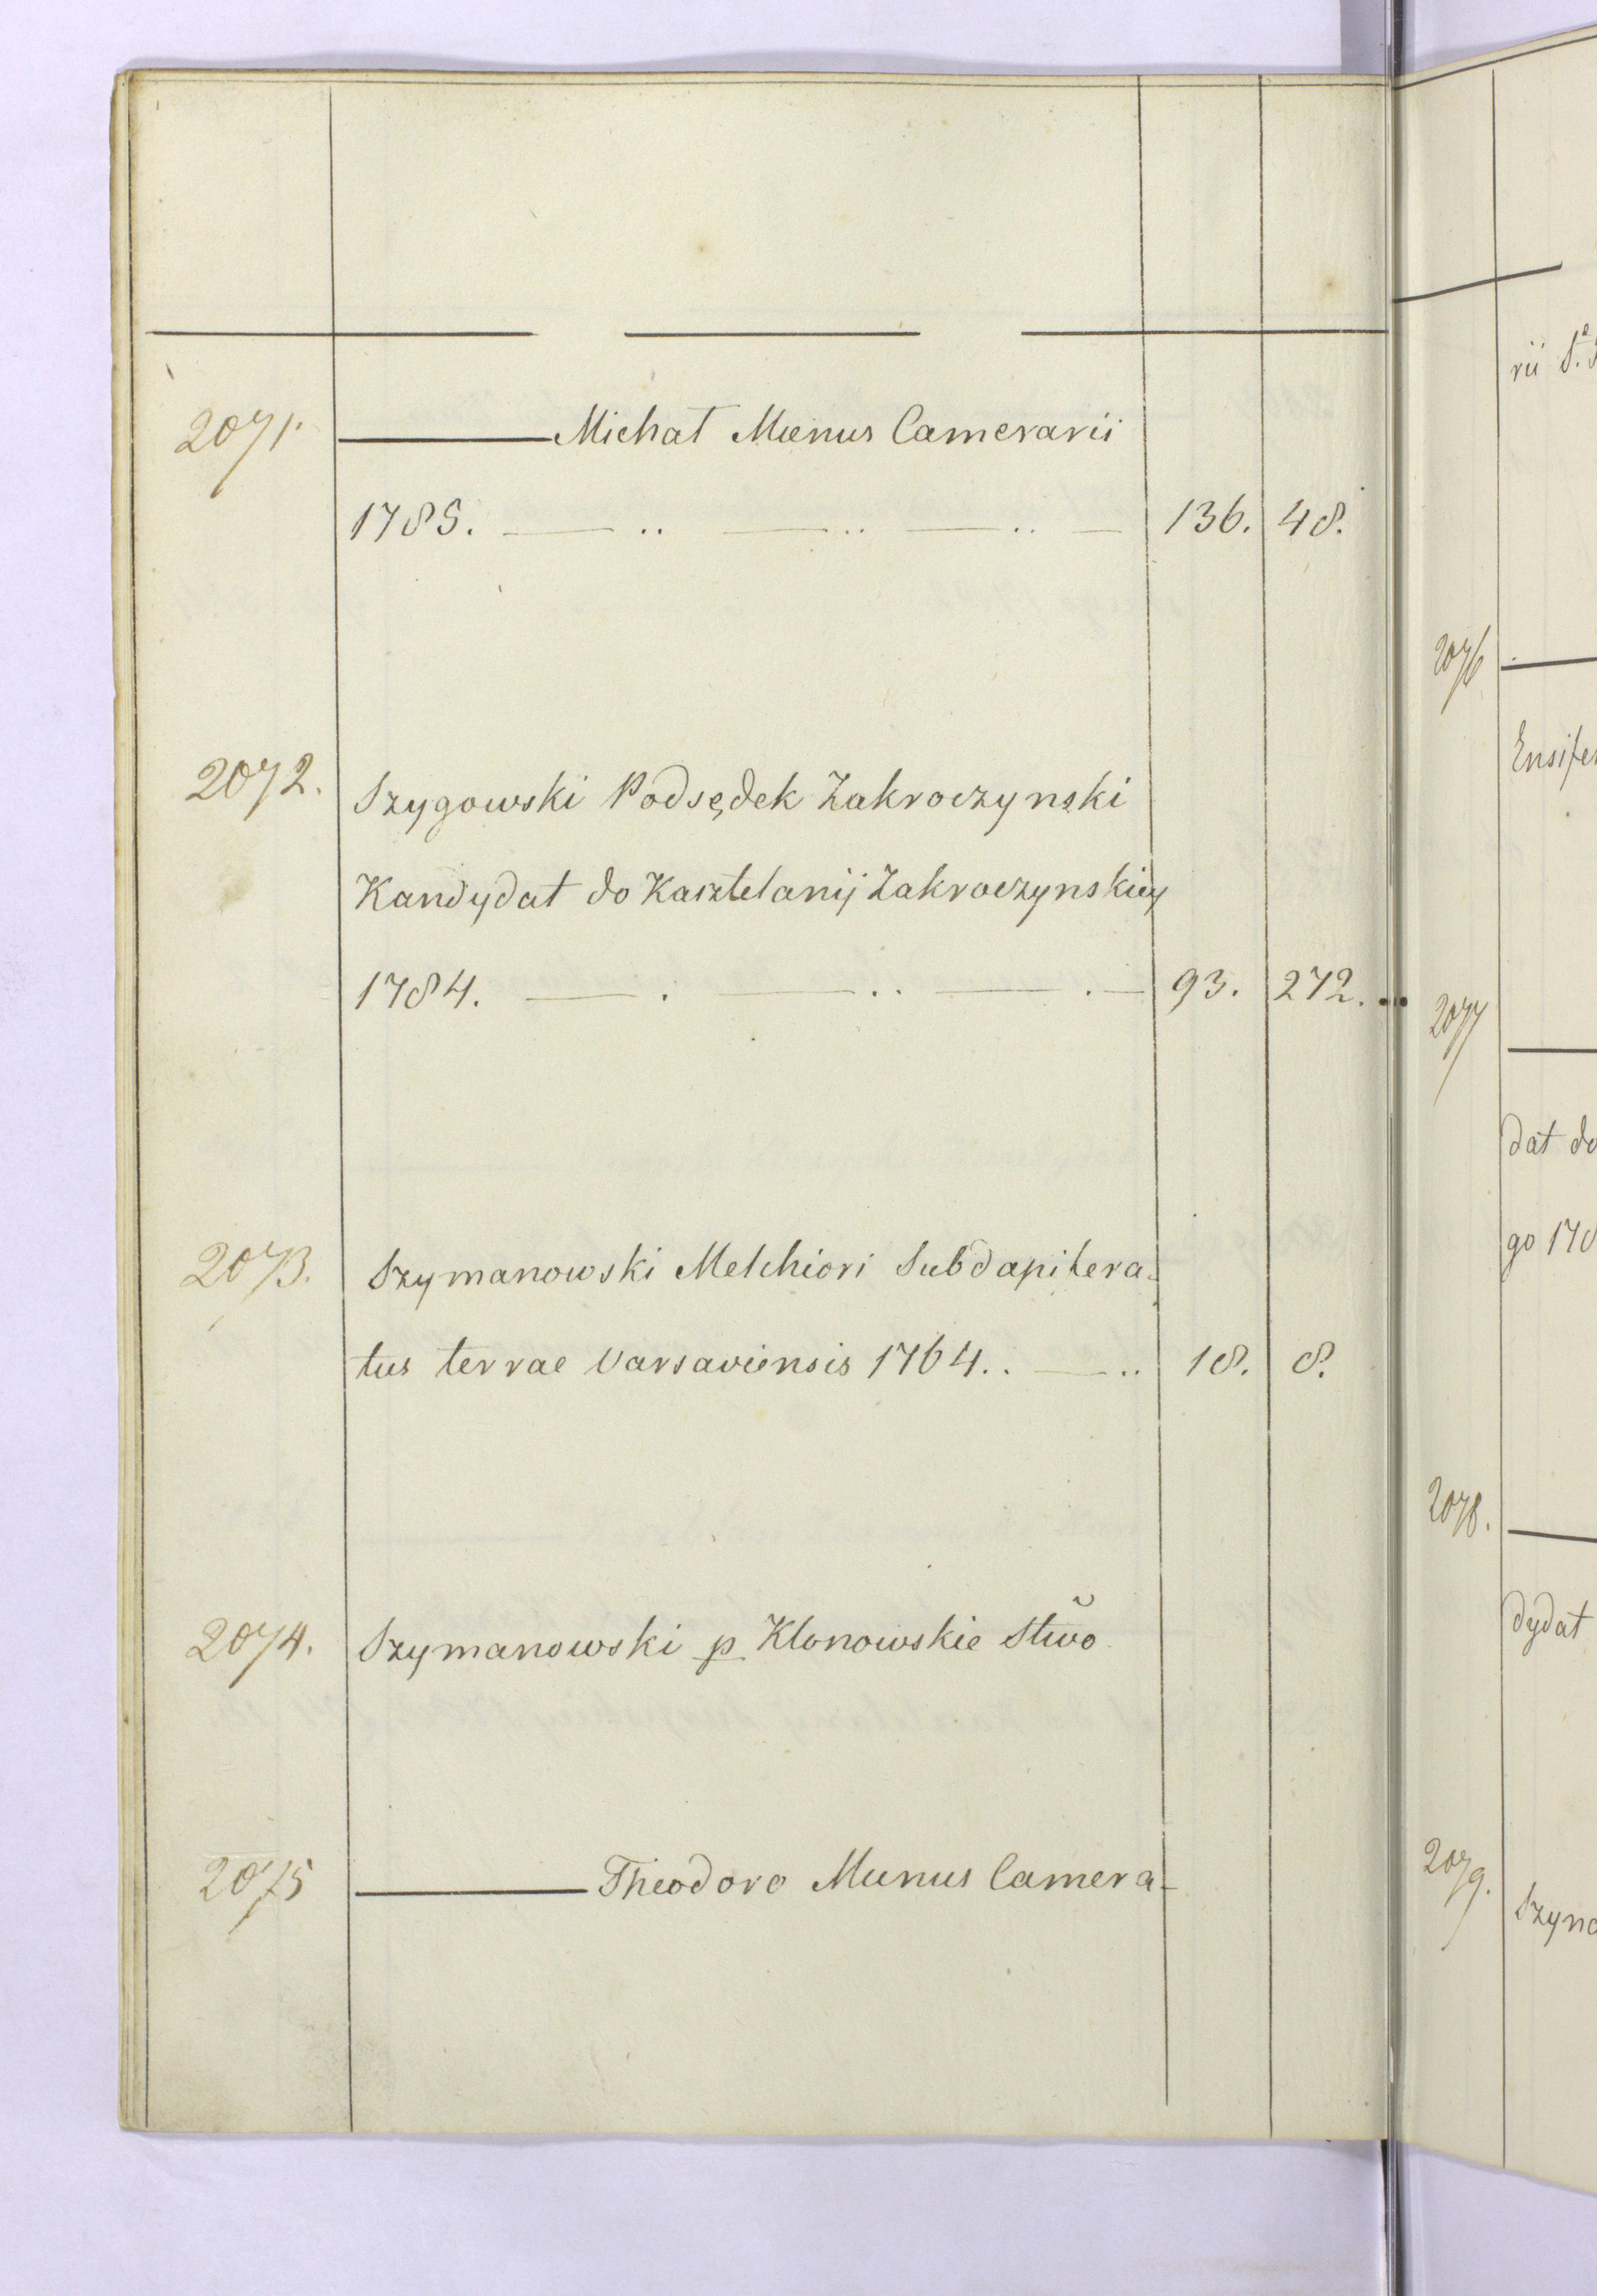 2071. ——— Michał Munus Camerarii
1785. — .. — .. — .. — 136. 48.
2072. Szygowski Podsędek Zakroczynski
Kandydat do Kasztelanij Zakroczynskiey
1784. — . — .. — . — 93. 272.
2073. Szymanowski Melchiori Subdapifera-
tus terrae Varsaviensis 1764.. — .. 18. 8.
2074. Szymanowski p Klonowskie Stwo
2075 ——— Theodoro Munus Camera-
rii
2076
2077
dat do
2078.
dydat
2079.